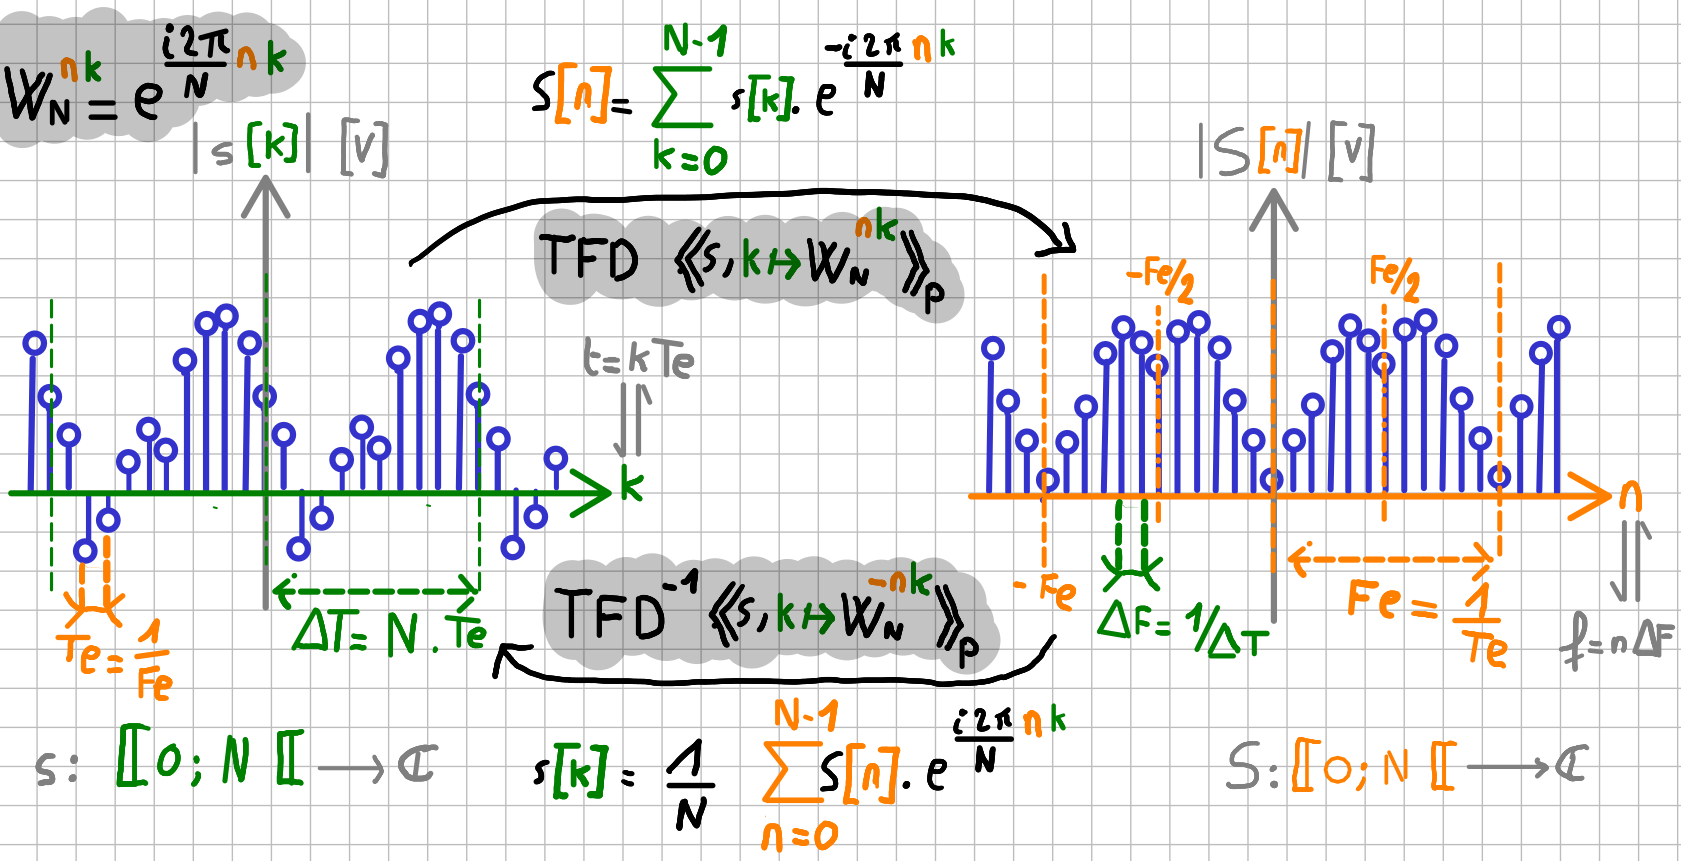 W_N^{nk} = e^{\frac{i2π}{N} nk}
S[n] = \sum_{k=0}^{N-1} s[k] . e^{\frac{-i2π}{N} nk}
|s[k]| [V]
|S[n]| [V]
TFD ⟪s, k ↦ W_N^{nk}⟫_p
-Fe/2
Fe/2
t = kTe
k
n
-Fe
Te = \frac{1}{Fe}
ΔT = N . Te
TFD^{-1} ⟪s, k ↦ W_N^{-nk}⟫_p
ΔF = 1/ΔT
Fe = \frac{1}{Te}
f = nΔF
s : ⟦0 ; N⟦ → ℂ
s[k] = \frac{1}{N} \sum_{n=0}^{N-1} S[n] . e^{\frac{i2π}{N} nk}
S : ⟦0 ; N⟦ → ℂ